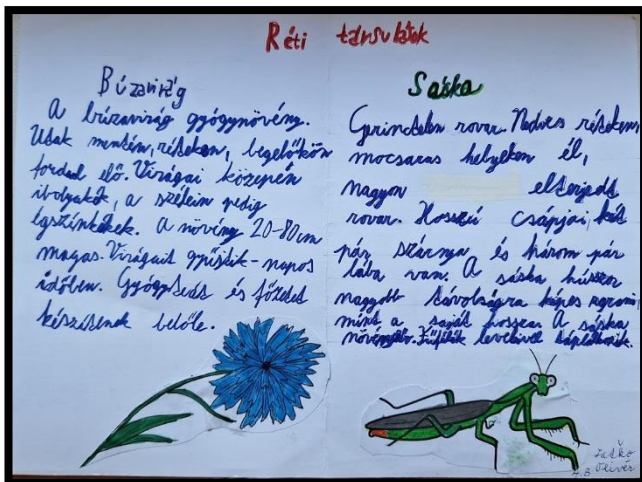 Réti társulások
Búzavirág
A búzavirág gyógynövény.
Utak mentén, réteken, legelőkön
fordul elő. Virágai közepén
ibolyakék, a szélein pedig
égszínkékek. A növény 20-80cm
magas. Virágait gyűjtik - napos
időben. Gyógyteát és főzetet
készítenek belőle.
Sáska
Gerinctelen rovar. Nedves réteken,
mocsaras helyeken él,
nagyon elterjedt
rovar. Hosszú csápjai, két
pár szárnya és három pár
lába van. A sáska hússzor
nagyobb távolságra képes ugrani
mint a saját hossza. A sáska
növényevő. Fűfélék leveleivel táplálkozik.
Olivér